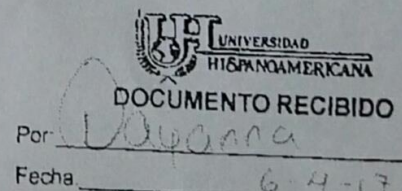 UNIVERSIDAD
HISPANOAMERICANA
DOCUMENTO RECIBIDO
Por Dayanna
Fecha 6-4-17